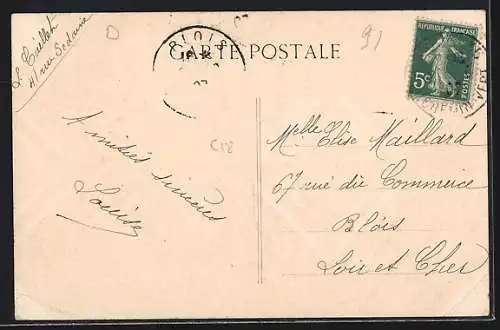 L. Caillet
41 rue Sedaine
D
BLOIS
CARTE POSTALE
91
REPUBLIQUE FRANÇAISE
5c
POSTES
C18
Amitiés sincères
Louise
Melle Elise Maillard
67 rue du Commerce
Blois
Loir et Cher